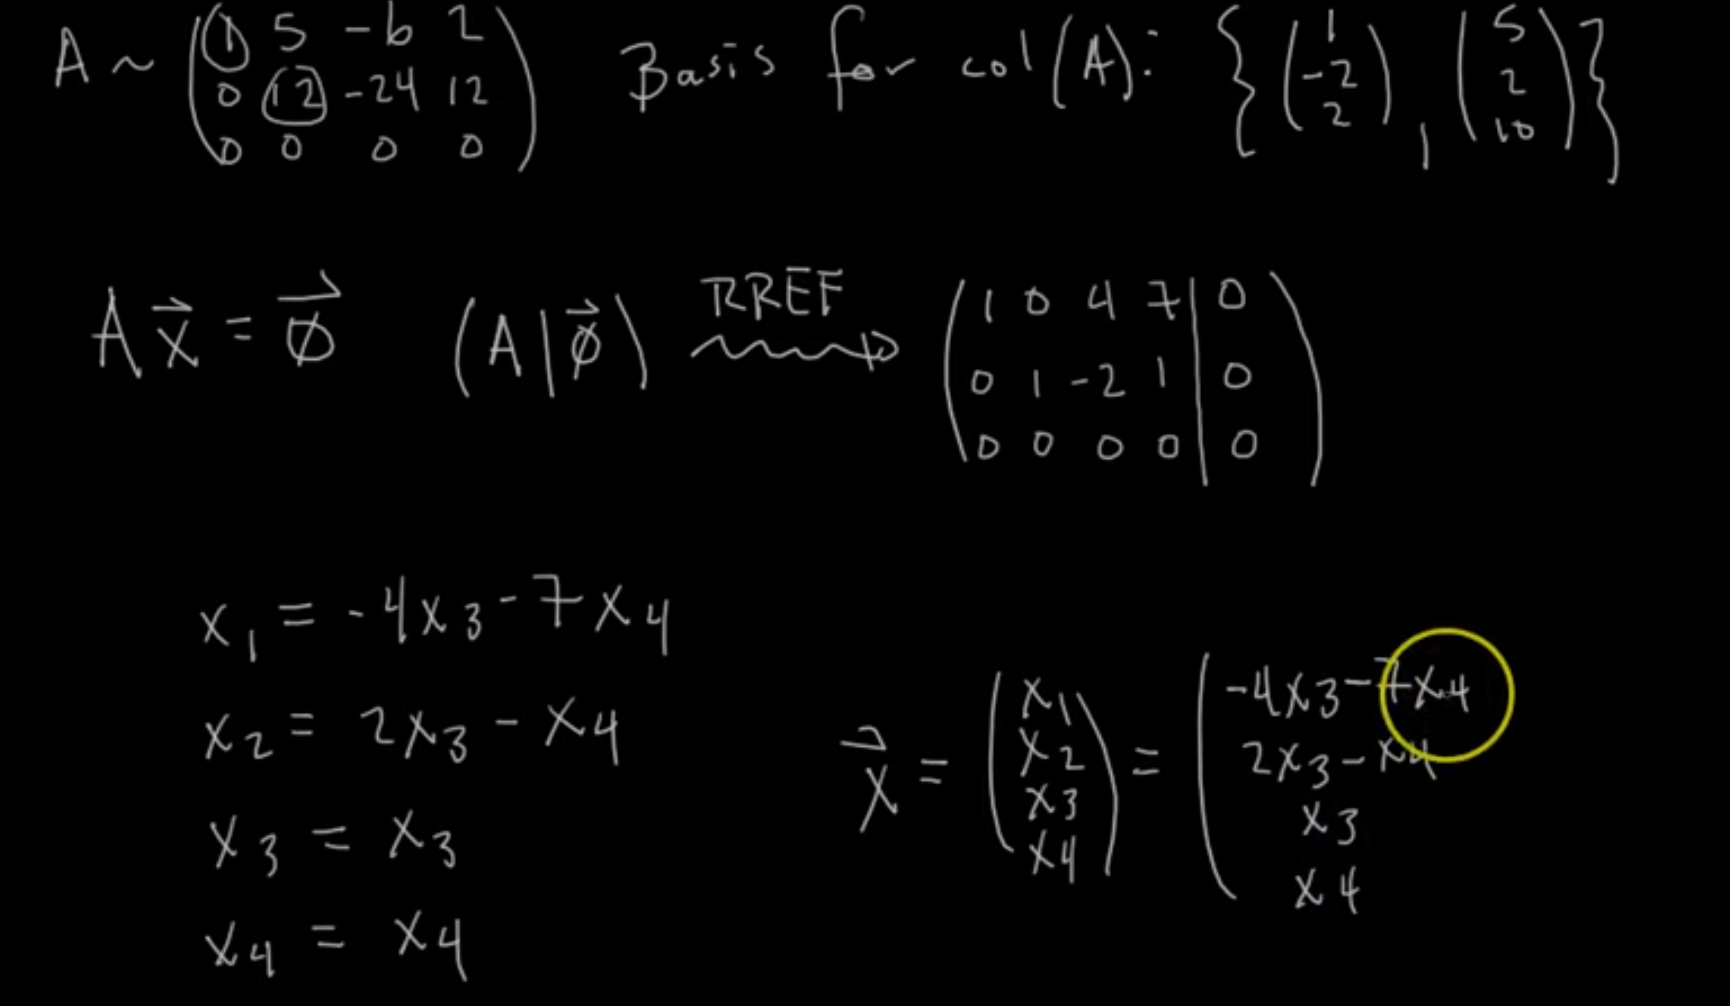 A ~ (1 5 -6 2
0 12 -24 12
0 0 0 0) Basis for col(A): {(1 -2 2), (5 2 10)}
Ax⃗ = 0⃗ (A|0⃗) RREF
(1 0 4 7 | 0
0 1 -2 1 | 0
0 0 0 0 | 0)
x₁ = -4x₃ - 7x₄
x₂ = 2x₃ - x₄
x₃ = x₃
x₄ = x₄
x⃗ = (x₁ x₂ x₃ x₄) = (-4x₃ - 7x₄
2x₃ - x₄
x₃
x₄